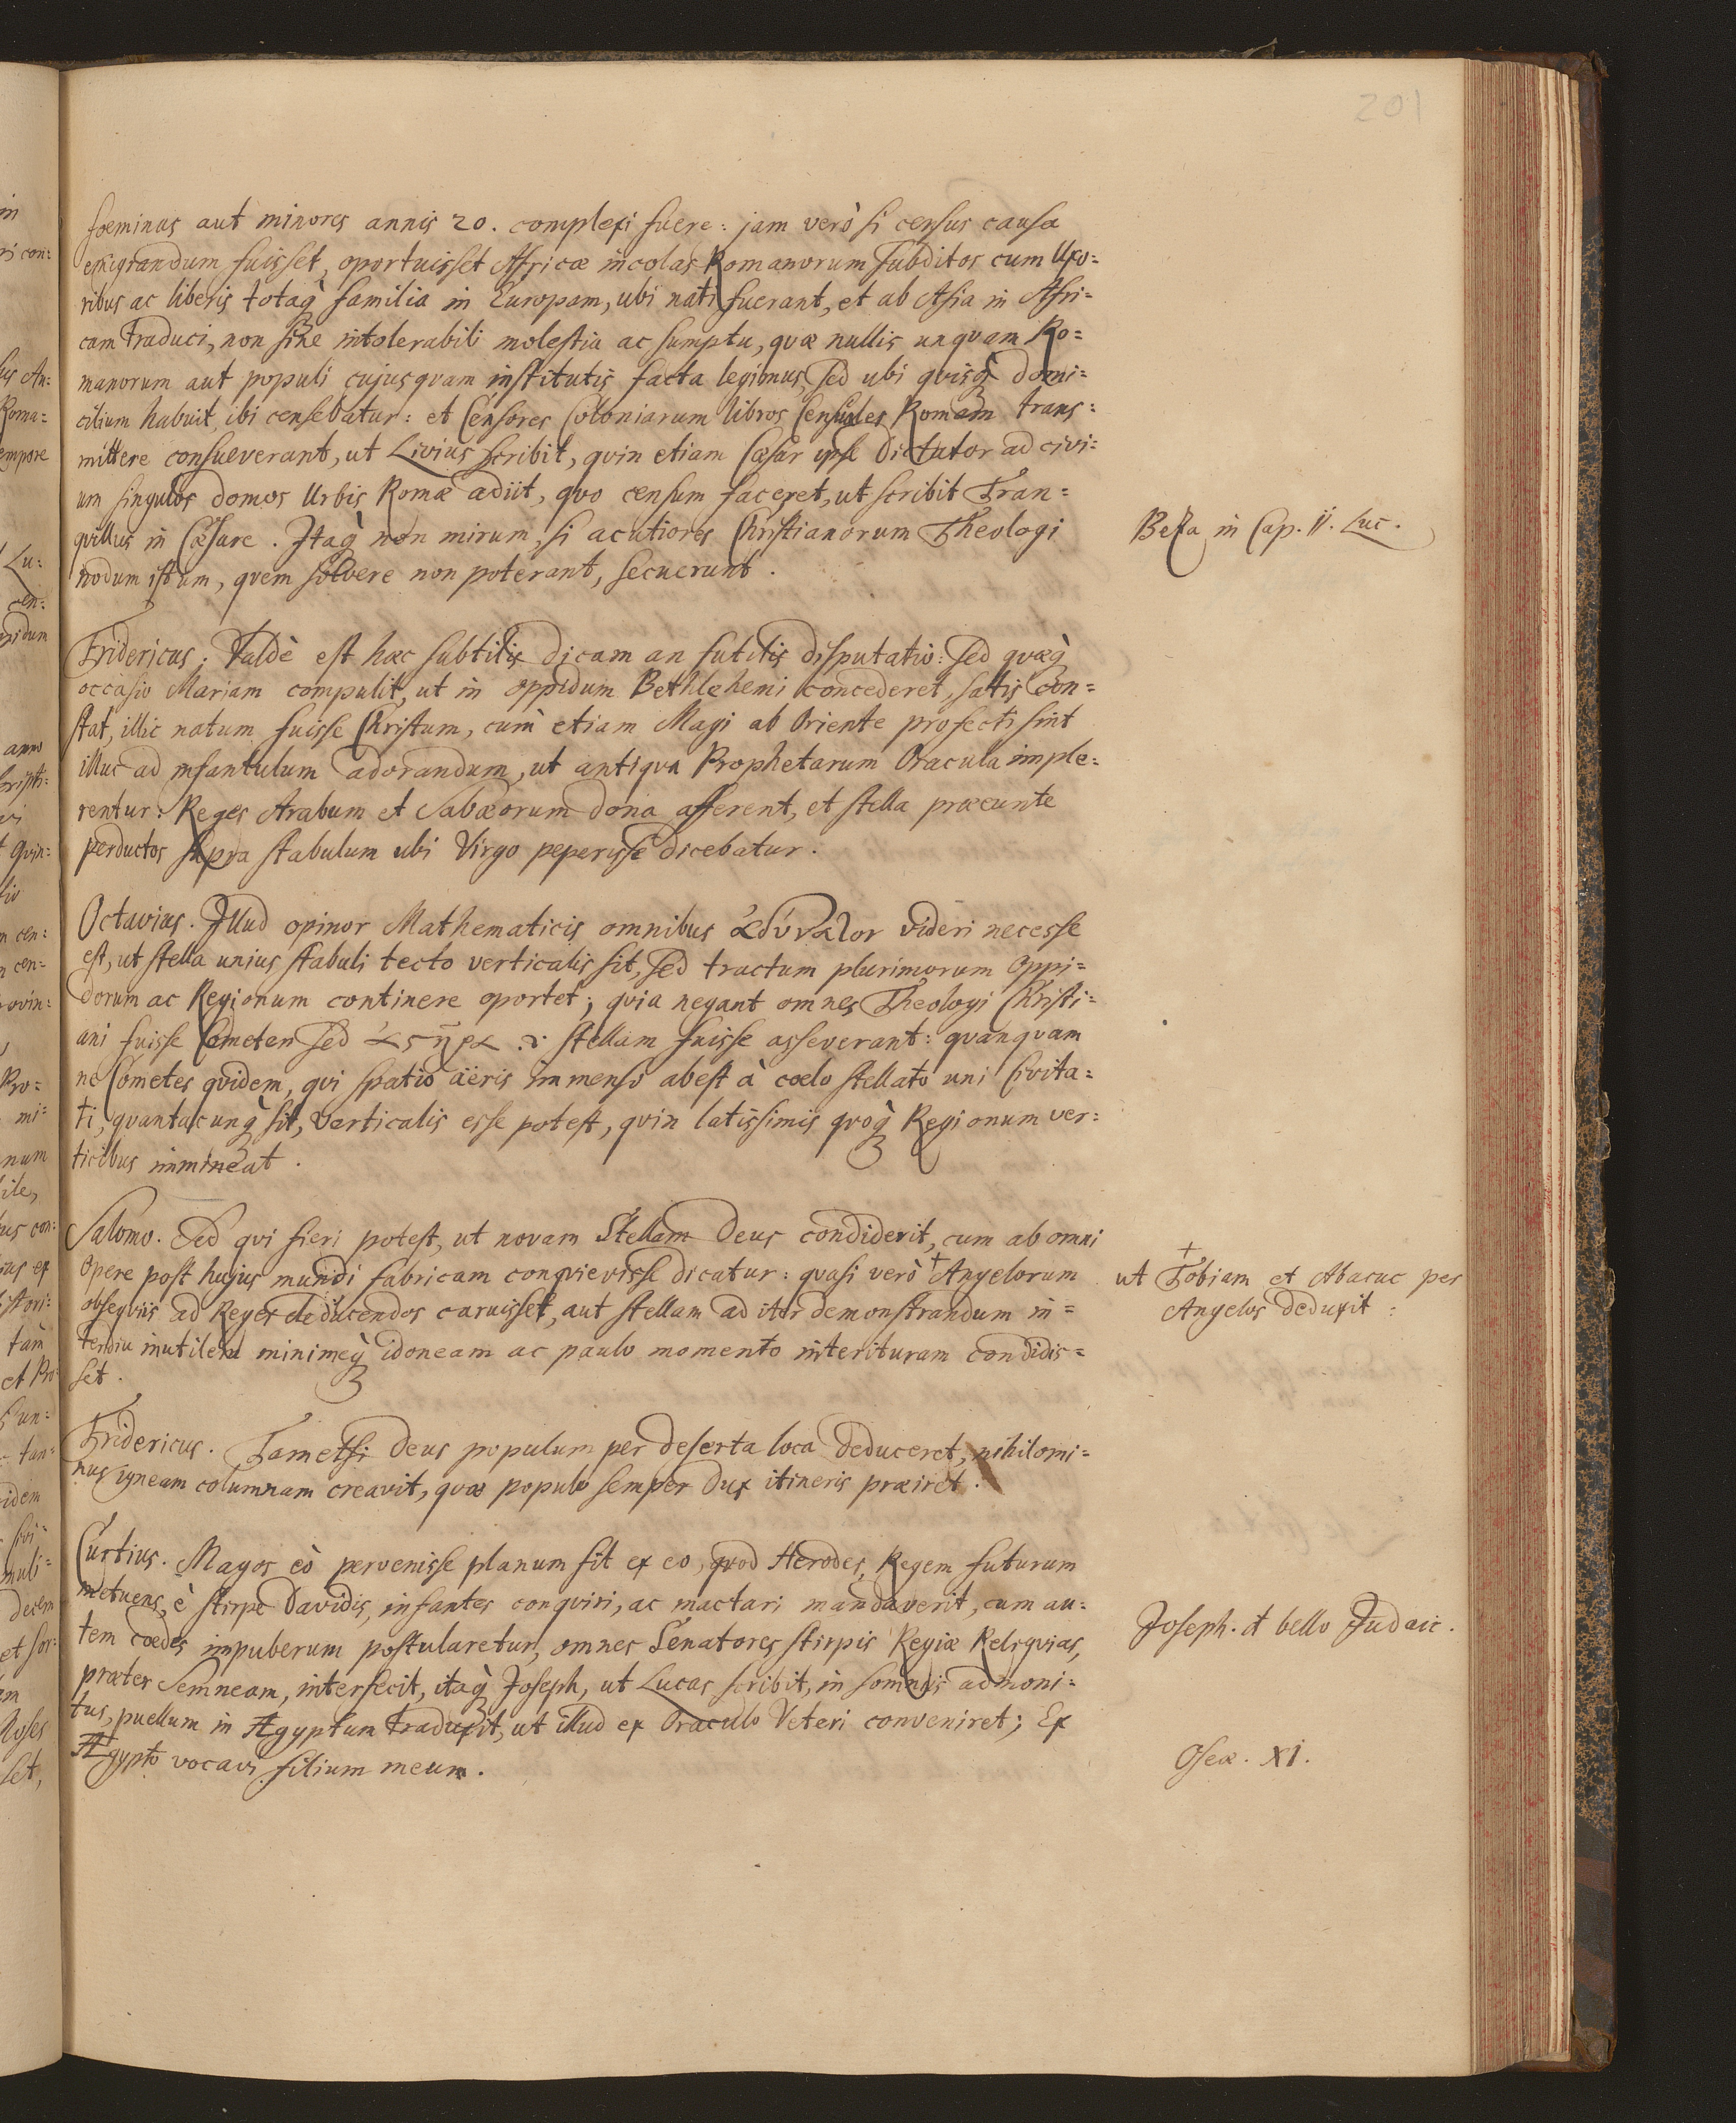 201
foeminas aut minores annis 20. complexi fuere: jam verò si census causa
emigrandum fuisset, oportuisset Africæ incolas Romanorum subditos cum Uxo=
ribus ac liberis totaq̀ familia in Europam, ubi nati fuerant, et ab Asia in Afri=
cam traduci, non sine intolerabili molestia ac sumptu, quæ nullis unquam Ro=
manorum aut populi cujusquam institutis facta legimus, sed ubi quisq̀ domi=
cilium habuit, ibi censebatur: et Censores Coloniarum libros Censuales Romam trans=
mittere consueverant, ut Livius scribit, quin etiam Cæsar ipse Dictator ad civi=
um singulos domos Urbis Romæ adiit, quo censum faceret, ut scribit Tran=
quillus in Cæsare. Itaq̀ non mirum, si acutiores Christianorum Theologi
Beza in Cap. ii. Luc.
nodum istum, quem solvere non poterant, secuerunt.
Fridericus; Valdè est hæc subtilis dicam an futilis disputatio: sed quæq̀
occasio Mariam compulit, ut in oppidum Bethlehemi concederet, satis con=
stat, illic natum fuisse Christum, cum etiam Magi ab Oriente profecti sint
illuc ad infantulum adorandum, ut antiqva Prophetarum Oracula imple=
rentur: Reges Arabum et Sabæorum dona afferent, et stella præeunte
perductos supra stabulum ubi Virgo peperisse dicebatur.
Octavius. Illud opinor Mathematicis omnibus ἀδύναλον videri necesse
est, ut stella unius stabuli tecto verticalis sit, sed tractum plurimorum Oppi=
dorum ac Regionum continere oportet; quia negant omnes Theologi Christi=
ani fuisse Cometen sed ἀςῆρα .v. stellam fuisse asseverant: quanquam
ne Cometes quidem, qui spatio aëris immenso abest à coelo stellato uni Civita=
ti, quantacunq̀ sit, verticalis esse potest, quin latissimis quoq̀ Regionum ver=
ticibus immineat.
Salomo. Sed qui fieri potest, ut novam Stellam Deus condiderit, cum ab omni
Opere post hujus mundi fabricam conquievisse dicatur: quasi verò + Angelorum
+ ut Tobiam et Abacuc per
obsequiis ad Reges deducendos caruisset, aut stellam ad iter demonstrandum in=
Angelos deduxit:
terdiu inutilem minimeq̀ idoneam ac paulo momento interituram condidis=
set.
Fridericus. Tametsi Deus populum per deserta loca deduceret, nihilomi=
nus igneam columnam creavit, quæ populo semper Dux itineris præiret.
Curtius. Magos eò pervenisse planum fit ex eo, quod Herodes, Regem futurum
metuens, è stirpe Davidis, infantes conquiri, ac mactari mandaverit, cum au=
Joseph. d bello Judaic.
tem cœdes impuberum postularetur, omnes Senatores stirpis Regiæ Reliquias,
præter Semneam, interfecit, itaq̀ Joseph, ut Lucas scribit, in somnis admoni=
tus, puellum in Ægyptum traduxit, ut illud ex Oraculo Veteri conveniret; Ex
Ægypto vocavi filium meum.
Oseæ. XI.